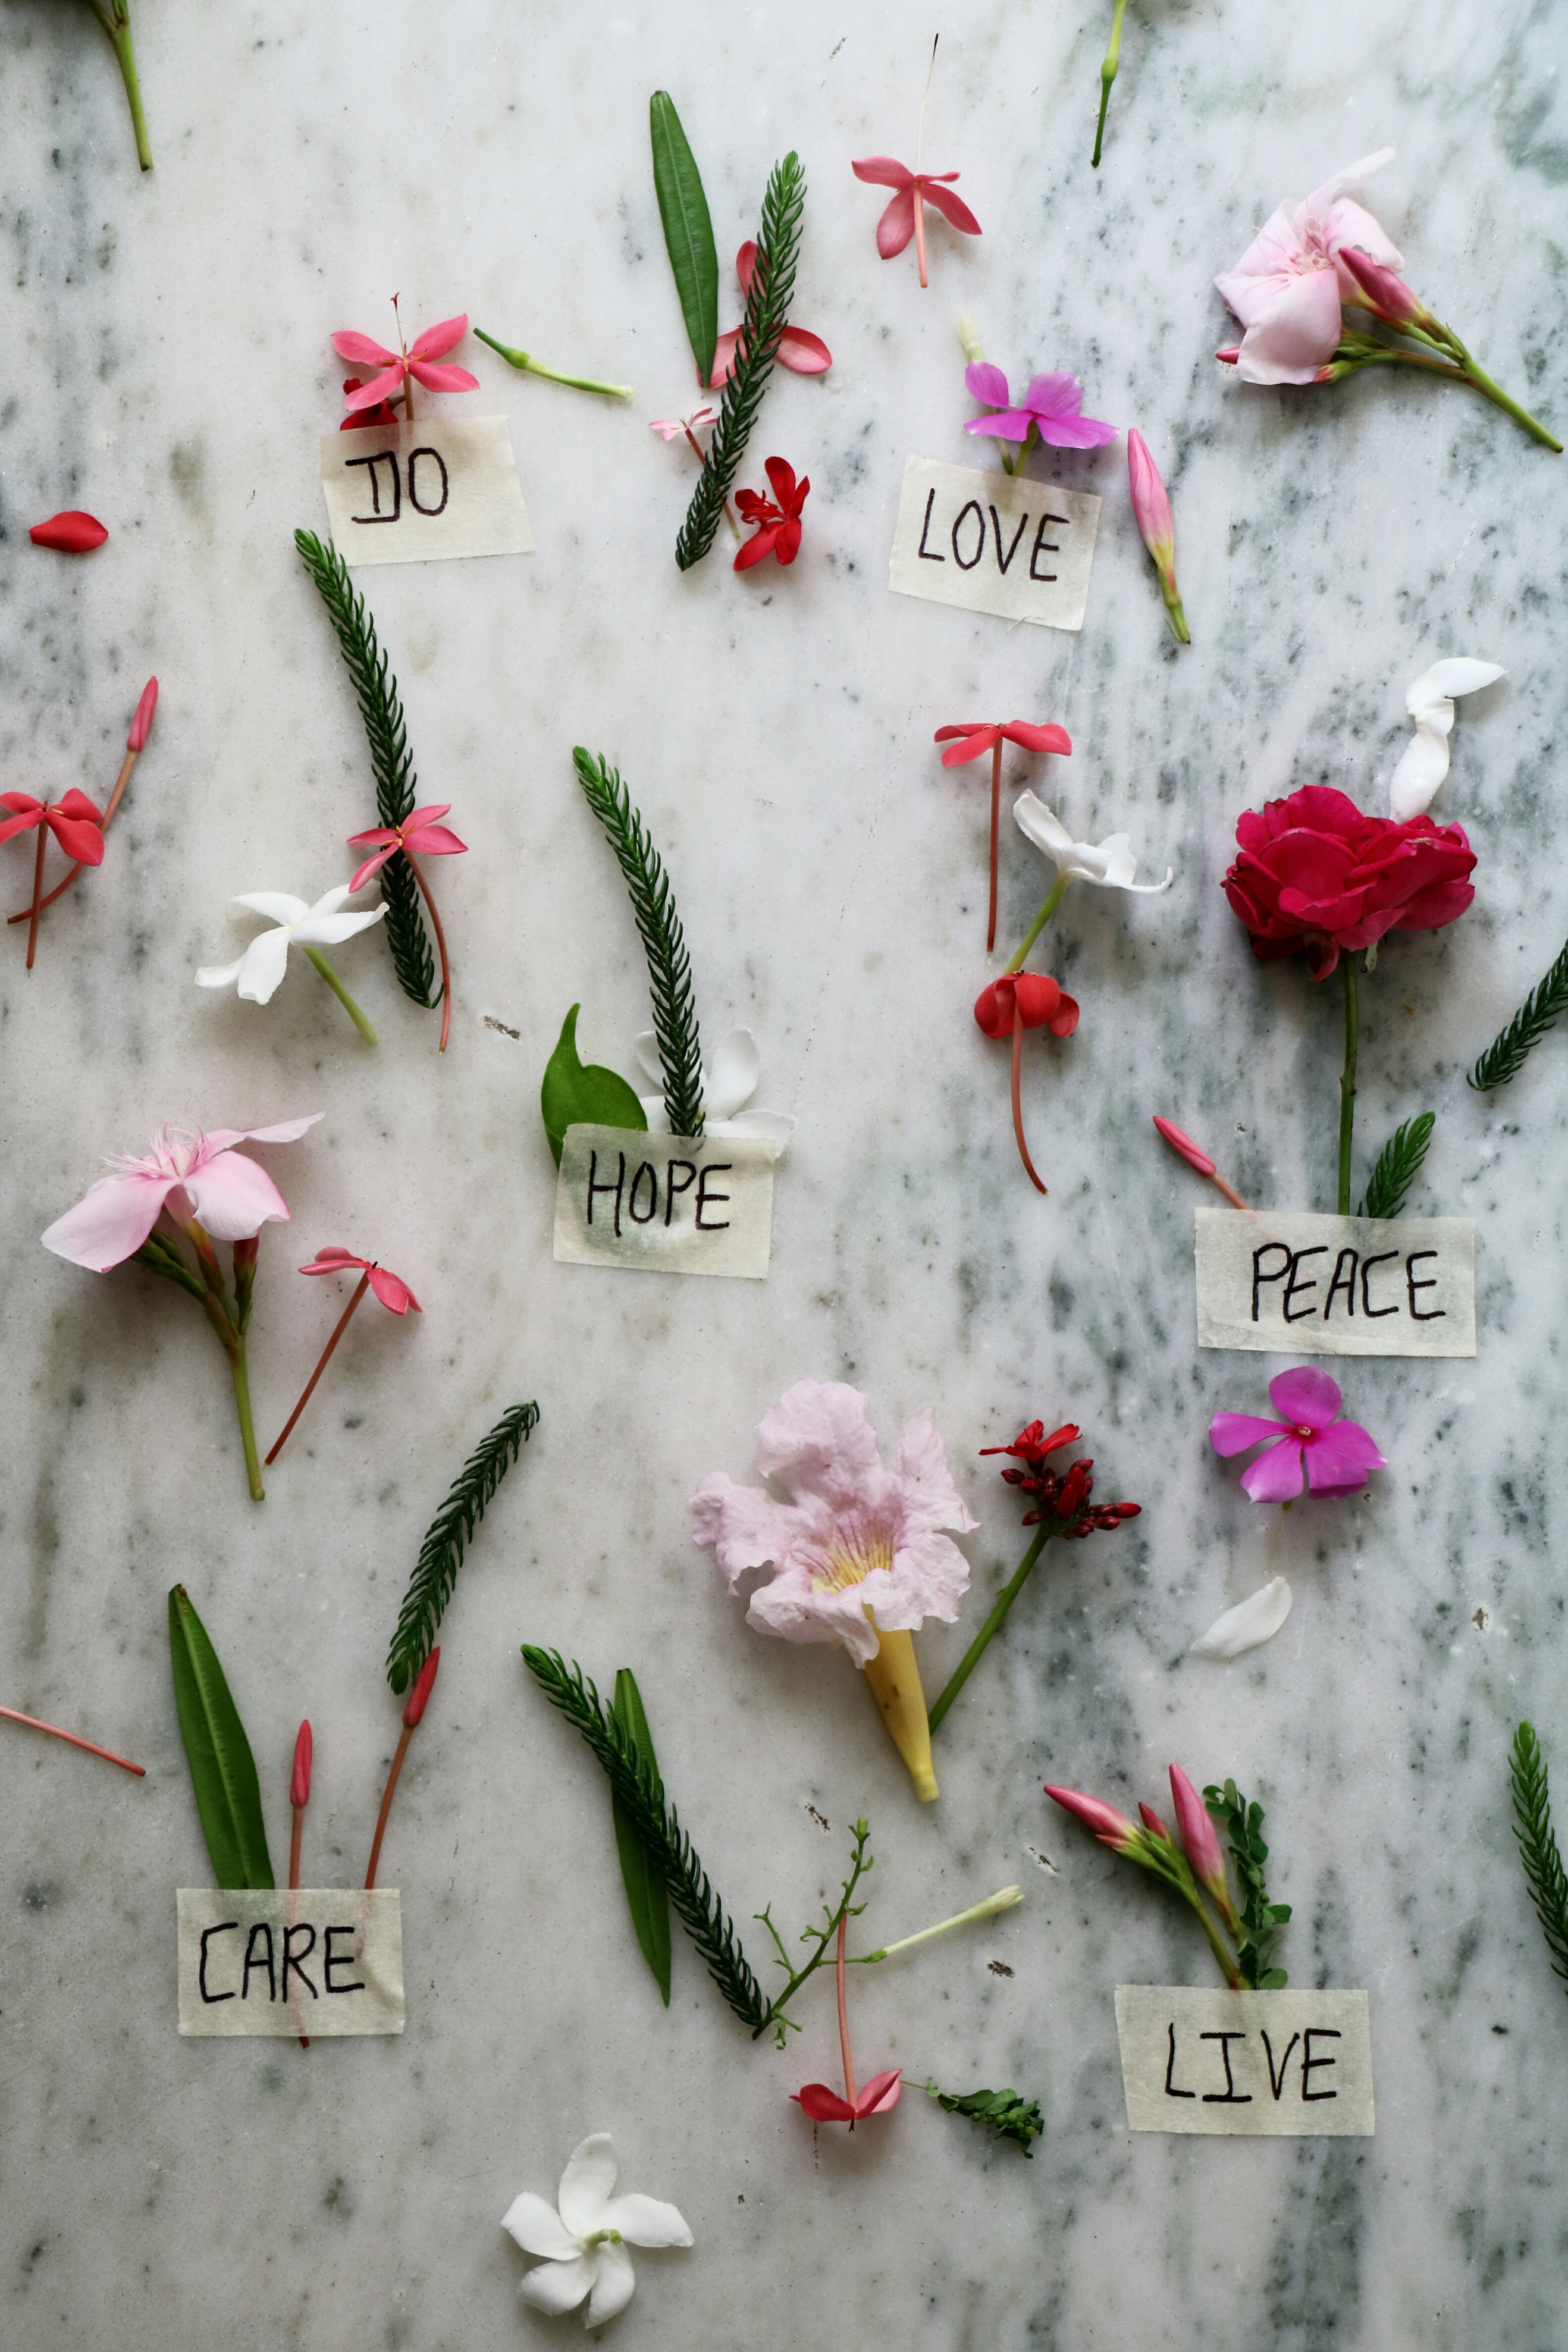 DO
LOVE
HOPE
PEACE
CARE
LIVE